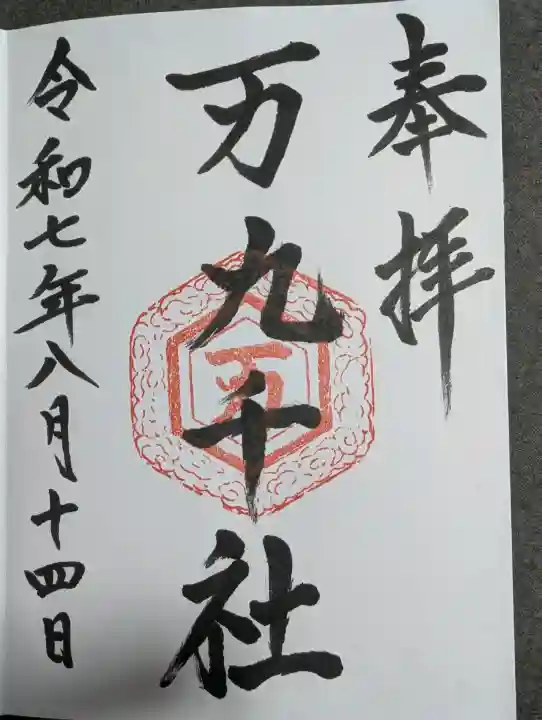 奉拝
万九千社
万
令和七年八月十四日